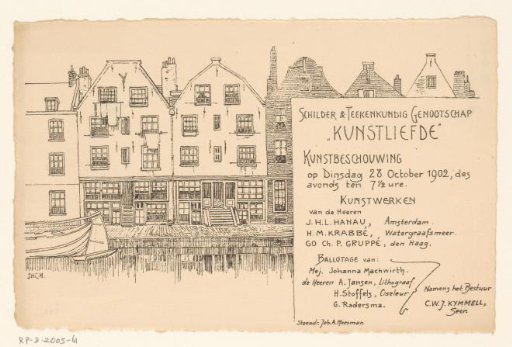 SCHILDER & TEEKENKUNDIG GENOOTSCHAP
"KUNSTLIEFDE"
KUNSTBESCHOUWING
op Dinsdag 28 October 1902, des
avonds ten 7½ ure.
KUNSTWERKEN
van de Heeren
J.H.L. HANAU, Amsterdam
H.M. KRABBÉ, Watergraafsmeer
GD CH. P. GRUPPÉ, den Haag.
BALLOTAGE van:
Mej. Johanna Machwirth.
de Heeren A. Jansen, Lithograaf
H. Stoffels, Ciseleur
G. Radersma.
Namens het Bestuur
C.W.J. KYMMELL,
Secr.
Steend: Joh. A. Moesman
JHLH.
RP-D-2005-